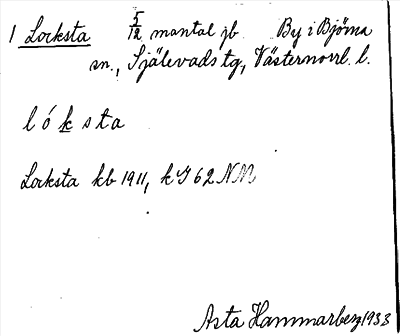 1 Locksta 5/12 mantal jb By i Björna
sn., Själevads tg, Västernorrl. l.
l ó k s t a
Locksta kb 1911, k J 62 NM
Asta Hammarberg 1933